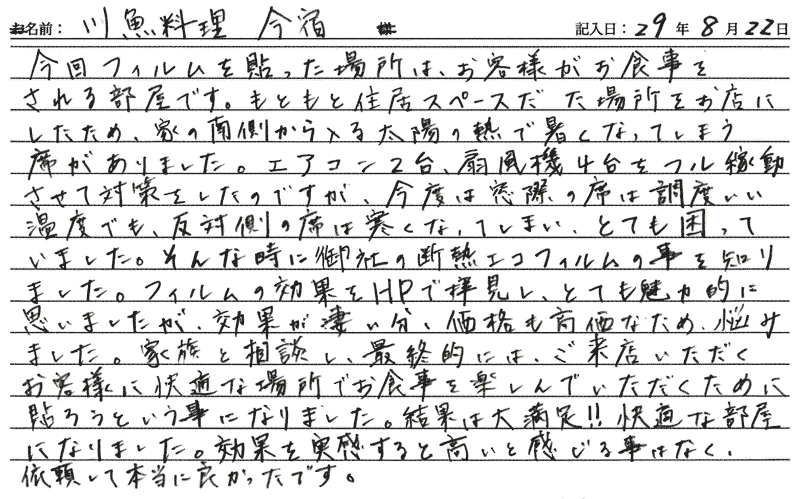 お名前: 川魚料理 今宿 様 記入日: 29年8月22日
今回フィルムを貼った場所は、お客様がお食事を
される部屋です。もともと住居スペースだった場所をお店に
したため、家の南側から入る太陽の熱で暑くなってしまう
席がありました。エアコン2台、扇風機4台をフル稼動
させて対策をしたのですが、今度は窓際の席は調度いい
温度でも、反対側の席は寒くなってしまい、とても困って
いました。そんな時に御社の断熱エコフィルムの事を知り
ました。フィルムの効果をHPで拝見し、とても魅力的に
思いましたが、効果が凄い分、価格も高価なため、悩み
ました。家族と相談し、最終的には、ご来店いただく
お客様に快適な場所でお食事を楽しんでいただくために
貼ろうという事になりました。結果は大満足!!快適な部屋
になりました。効果を実感すると高いと感じる事はなく、
依頼して本当に良かったです。